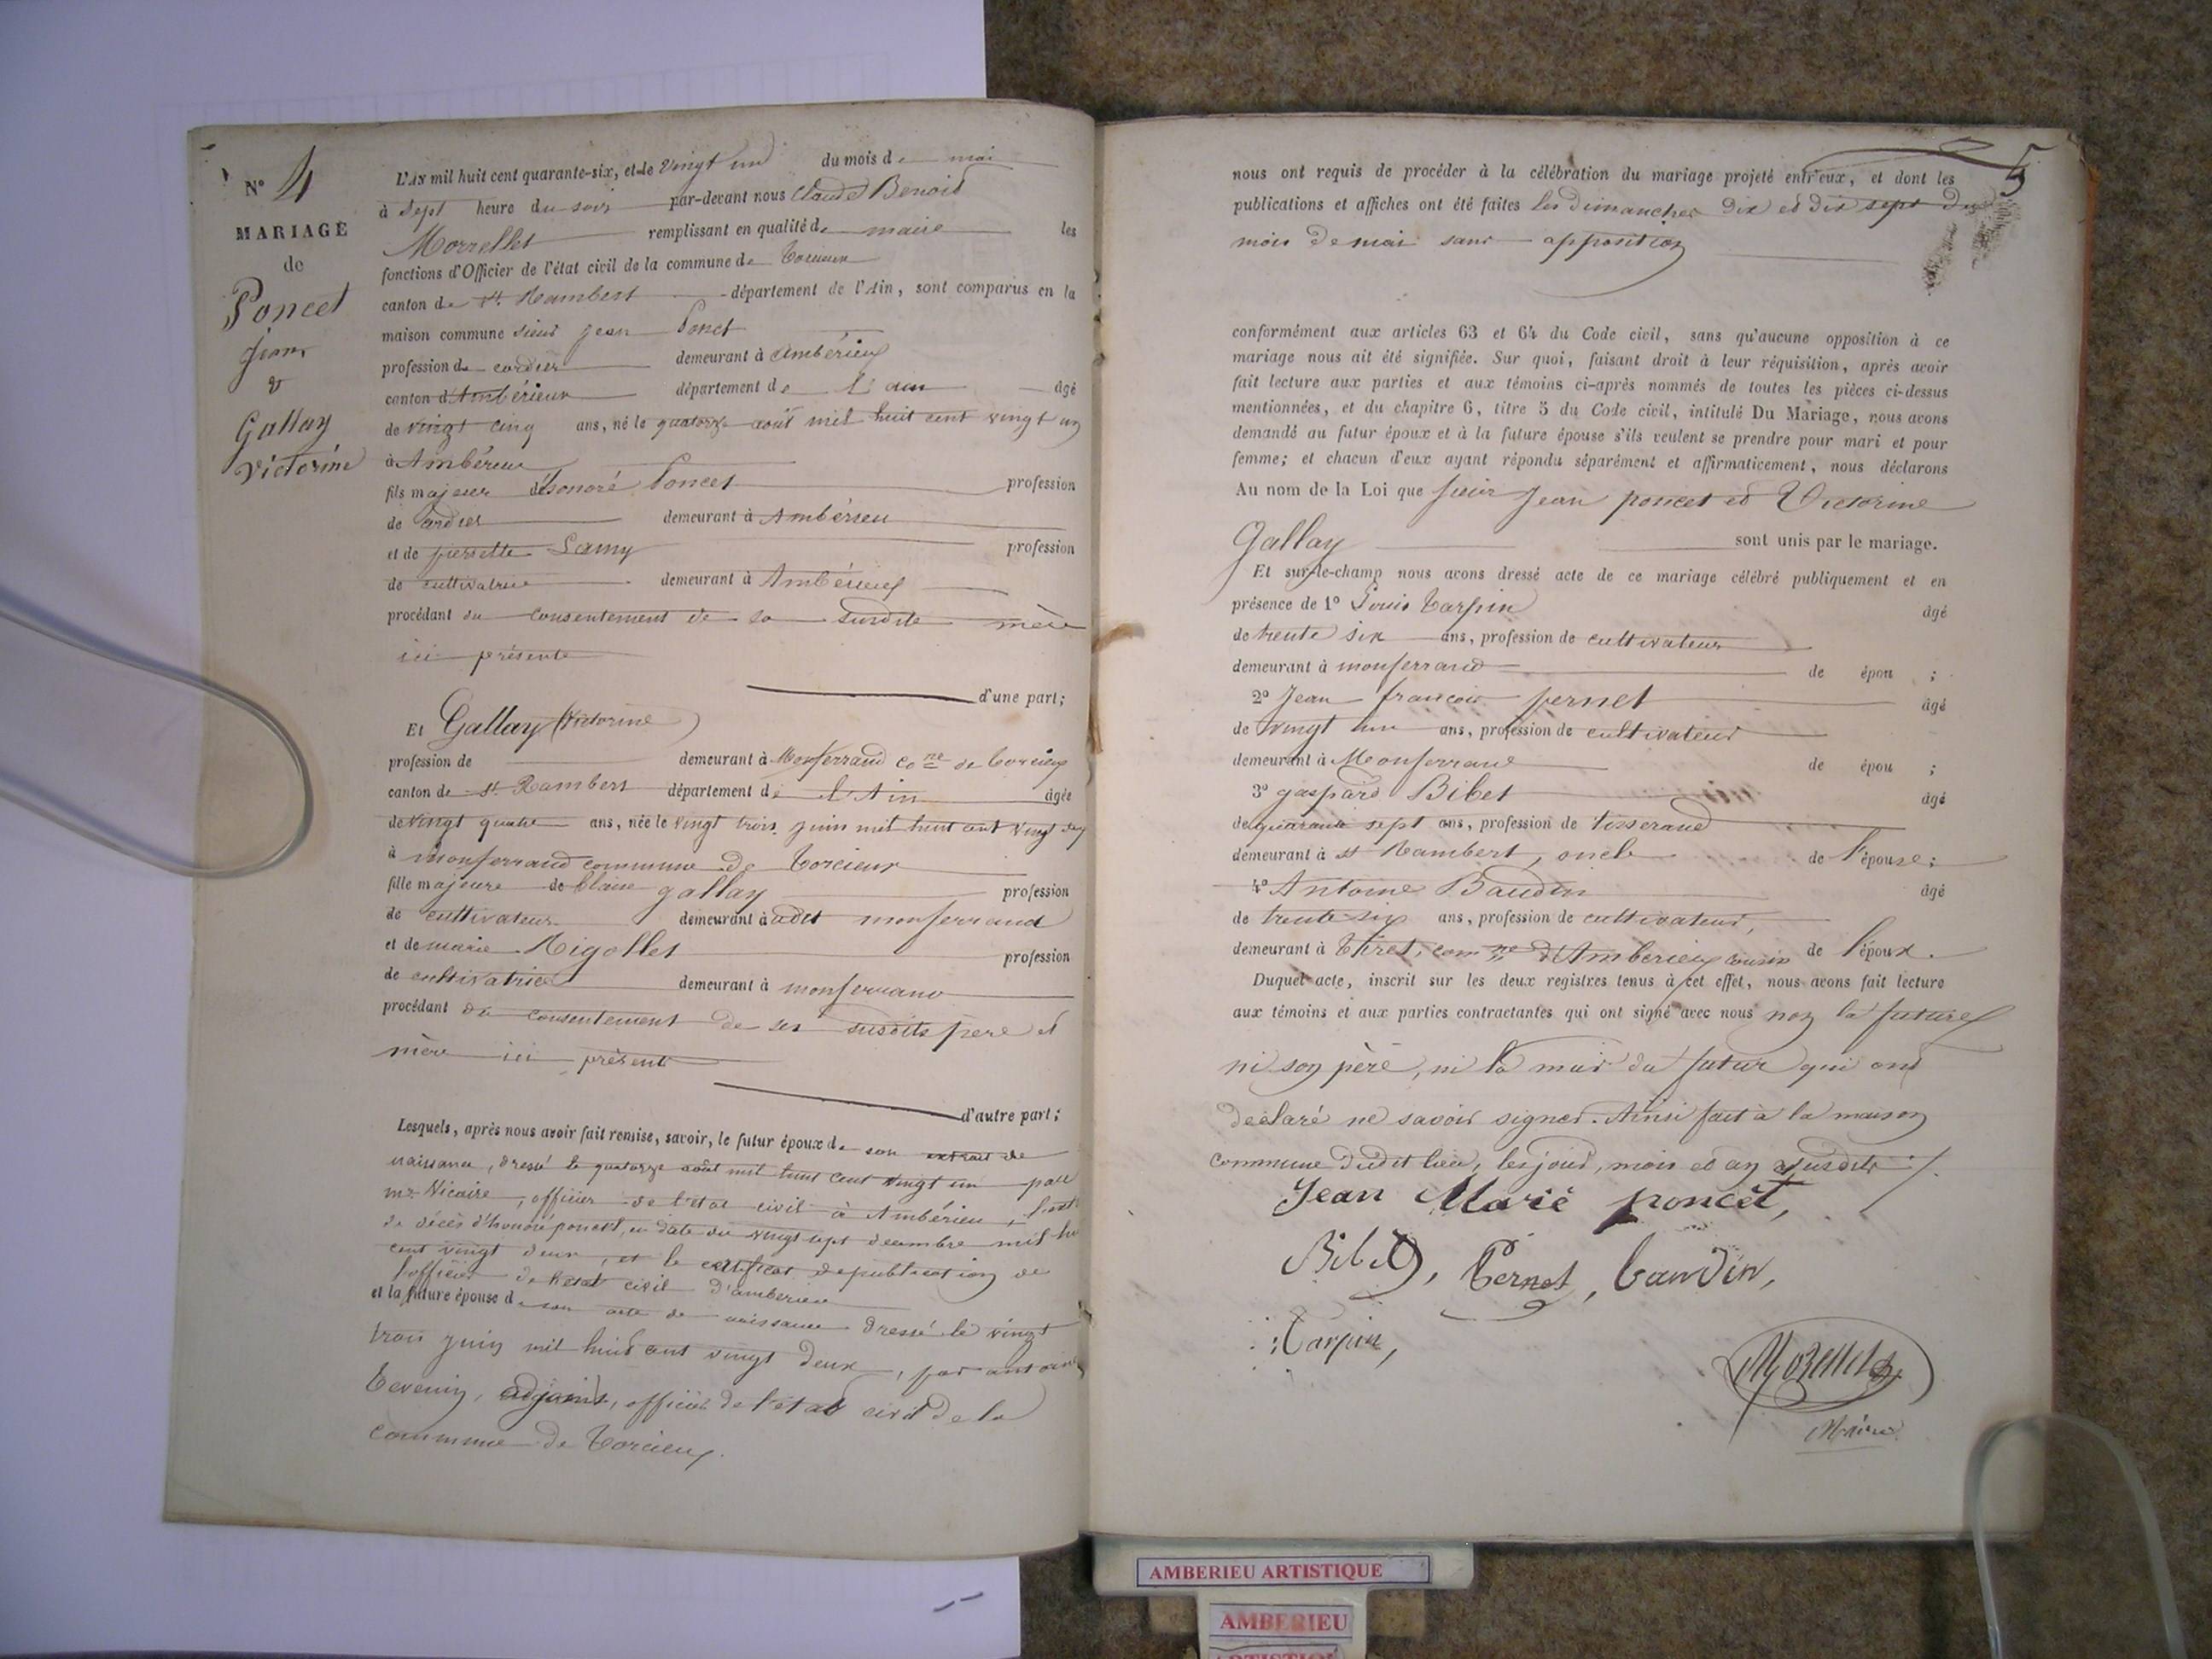 N° 4
MARIAGE
de
Poncet
Jean
&
Gallay
Victorine
L'AN mil huit cent quarante-six, et le vingt un du mois de mai
à sept heure du soir par-devant nous Claude Benoit
Morrellet remplissant en qualité de maire les
fonctions d'Officier de l'état civil de la commune de Torcieux
canton de St. Rambert département de l'Ain, sont comparus en la
maison commune sieur jean Poncet
profession de cordier demeurant à Ambérieux
canton d'Ambérieux département de l'ain âgé
de vingt cinq ans, né le quatorze août mil huit cent vingt un
à Ambérieu
fils majeur d'honoré Poncet profession
de cordier demeurant à Ambérieu
et de pierrette Lamy profession
de cultivatrice demeurant à Ambérieux
procédant du consentement de sa susdite mère
ici présente
d'une part;
Et Gallay (Victorine)
profession de demeurant à Monferrand cone de Torcieux
canton de St. Rambert département de l'Ain âgée
de vingt quatre ans, née le vingt trois juin mil huit cent vingt
à monferrand commune de Torcieux
fille majeure de Claire gallay profession
de cultivateur demeurant à udit monferrand
et de marie Rigollet profession
de cultivatrice demeurant à monferrand
procédant du consentement de ses susdits père et
mère ici présents
d'autre part;
Lesquels, après nous avoir fait remise, savoir, le futur époux de son extrait de
naissance, dressé le quatorze août mil huit cent vingt un par
mr. Nicaire, officier de l'état civil à Ambérieu,
de décès d'honoré poncet, en date du vingt sept décembre mil
cent vingt deux, et le certificat de publication de
l'officier de l'état civil d'ambérieu
et la future épouse de son acte de naissance dressé le vingt
trois juin mil huit cent vingt deux, par antoine
Tevenin, adjoint, officier de l'état civil de la
commune de Torcieux.
5
nous ont requis de procéder à la célébration du mariage projeté entr'eux, et dont les
publications et affiches ont été faites les dimanches dix et dix sept du
mois de mai sans opposition
conformément aux articles 63 et 64 du Code civil, sans qu'aucune opposition à ce
mariage nous ait été signifiée. Sur quoi, faisant droit à leur réquisition, après avoir
fait lecture aux parties et aux témoins ci-après nommés de toutes les pièces ci-dessus
mentionnées, et du chapitre 6, titre 5 du Code civil, intitulé Du Mariage, nous avons
demandé au futur époux et à la future épouse s'ils veulent se prendre pour mari et pour
femme; et chacun d'eux ayant répondu séparément et affirmativement, nous déclarons
Au nom de la Loi que sieur Jean poncet et Victorine
Gallay sont unis par le mariage.
Et sur-le-champ nous avons dressé acte de ce mariage célébré publiquement et en
présence de 1° Louis Tarpin âgé
de trente six ans, profession de cultivateur
demeurant à monferrand de épou ;
2° Jean françois pernet âgé
de vingt un ans, profession de cultivateur
demeurant à Monferrand de épou ;
3° gaspard Bibet âgé
de quarante sept ans, profession de tisserand
demeurant à St Rambert, oncle de l'épouse;
4° Antoine Baudin âgé
de trente six ans, profession de cultivateur,
demeurant à Tiret, comne d'Ambérieux cousin de l'époux.
Duquel acte, inscrit sur les deux registres tenus à cet effet, nous avons fait lecture
aux témoins et aux parties contractantes qui ont signé avec nous non la future
ni son père, ni la mère du futur qui ont
déclaré ne savoir signer. Ainsi fait à la maison
commune dudit lieu, les jour, mois et an susdits ./.
Jean Marie poncet,
Bibet, Pernet, baudin,
Tarpin,
Morellet
Maire
AMBERIEU ARTISTIQUE
AMBERIEU
ARTISTIQUE